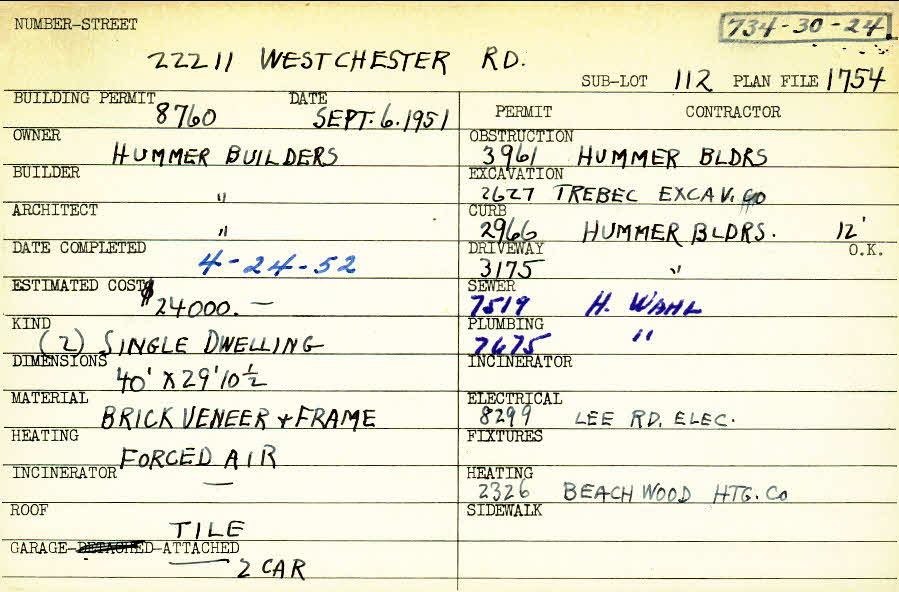 NUMBER-STREET
734-30-24
22211 WESTCHESTER RD.
SUB-LOT 112 PLAN FILE 1754
BUILDING PERMIT DATE
8760 SEPT. 6. 1951
PERMIT CONTRACTOR
OWNER
HUMMER BUILDERS
OBSTRUCTION
3961 HUMMER BLDRS
BUILDER
"
EXCAVATION
2627 TREBEC EXCAV. CO
ARCHITECT
"
CURB
2966 HUMMER BLDRS. 12'
DATE COMPLETED
4-24-52
DRIVEWAY O.K.
3175 "
ESTIMATED COST
$24000. —
SEWER
7519 H. WAHL
KIND
(2) SINGLE DWELLING
PLUMBING
7675 "
DIMENSIONS
40' X 29' 10 1/2
INCINERATOR
MATERIAL
BRICK VENEER + FRAME
ELECTRICAL
8299 LEE RD. ELEC.
HEATING
FORCED AIR
FIXTURES
INCINERATOR
—
HEATING
2326 BEACHWOOD HTG. Co
ROOF
TILE
SIDEWALK
GARAGE-DETACHED-ATTACHED
2 CAR